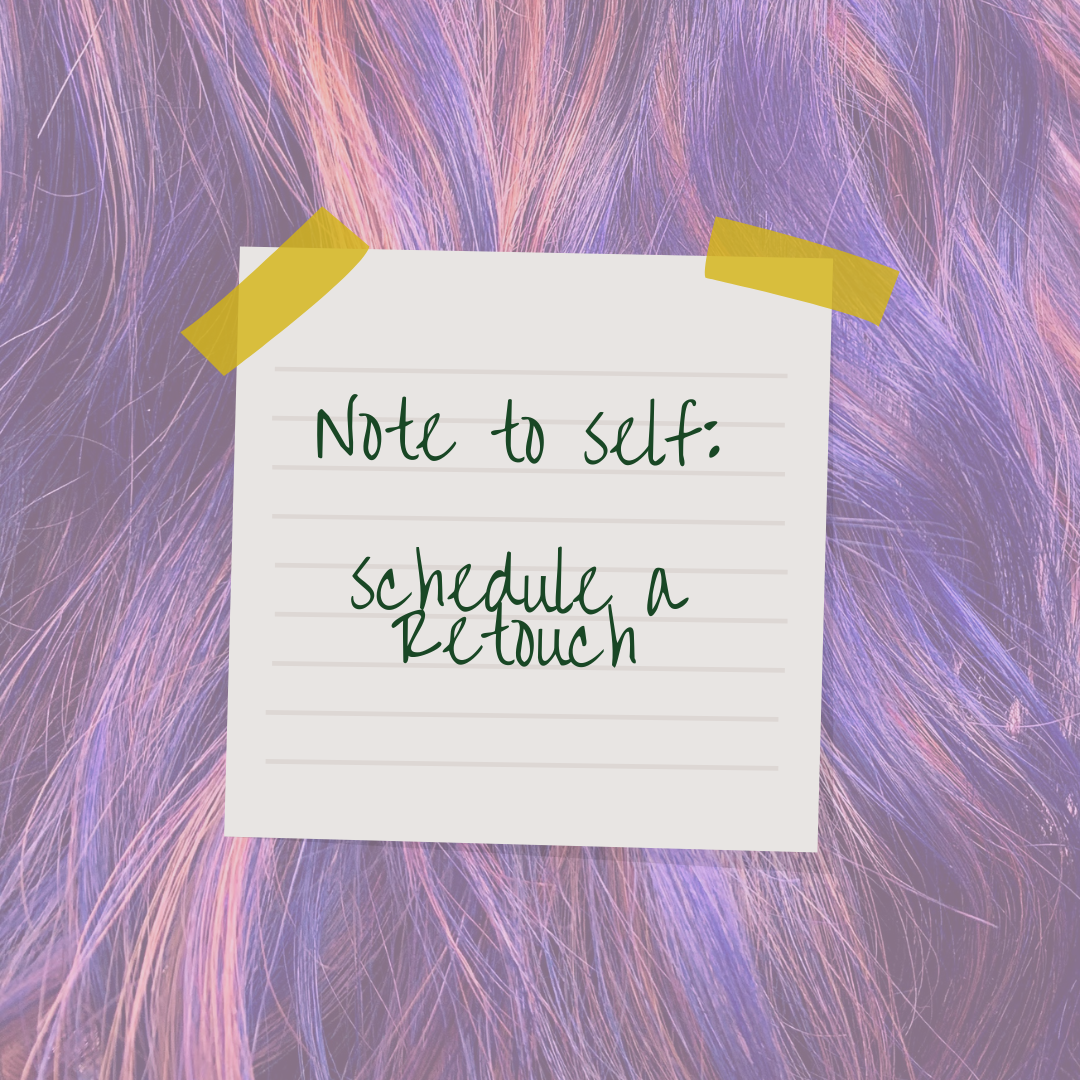 Note to self:
schedule a
Retouch